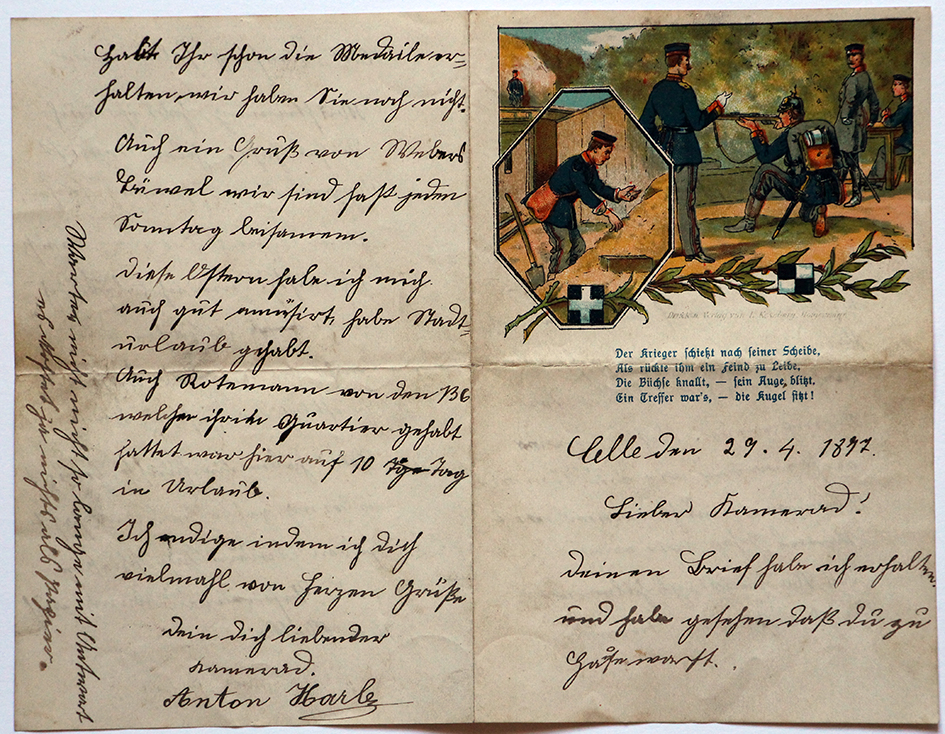 Verlag von
Der Krieger schießt nach seiner Scheibe,
Als rückte ihm ein Feind zu Leibe,
Die Büchse knallt, — sein Auge blitzt.
Ein Treffer war's, — die Kugel sitzt!
Celle den 29. 4. 1897.
Lieber Kamerad!
deinen Brief habe ich erhalten
und habe gesehen daß du zu
Hause warst.
Habt Ihr schon die Medaile er-
halten, wir haben Sie noch nicht.
Auch ein Gruß von Webers
wir sind fast jeden
Sonntag beisamem.
Diese Ostern habe ich mich
auch gut amüsirt, habe Stadt-
urlaub gehabt.
Auch Rotemann von den 136
welcher Quartier gehabt
hattet war hier auf 10 Tag
in Urlaub.
Ich endige indem ich dich
vielmahl von Herzen Grüße
dein dich liebender
Kamerad.
Anton Harle
nicht so lange mit Antwort
es kostet ja nichts als Papier.